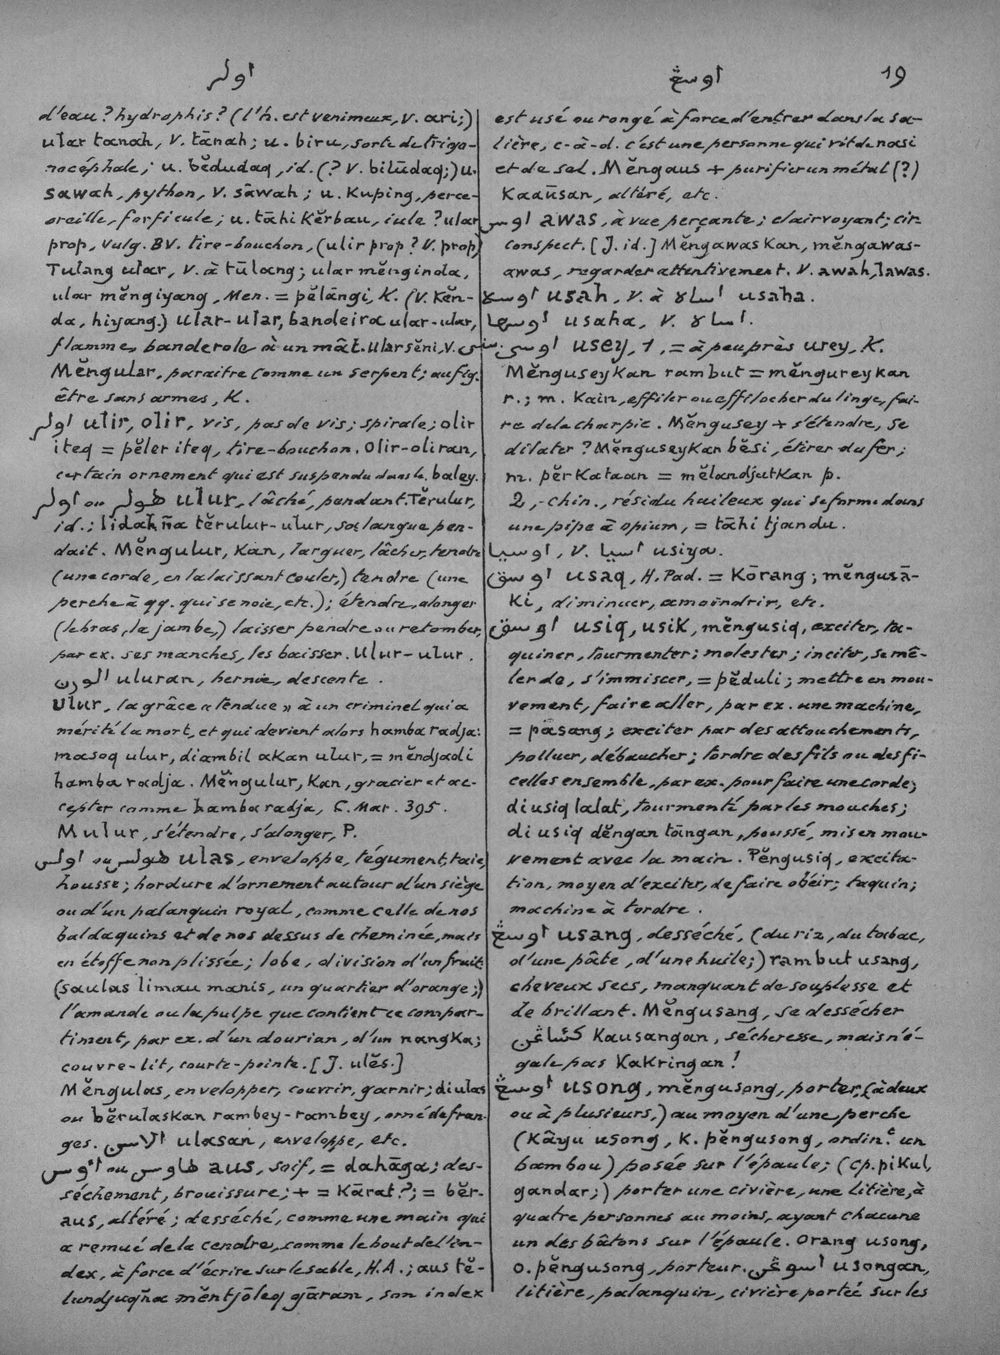 اولر
اوسڠ
19
d'eau? hydrophis? (l'h. est venimeux, v. ari;)
ular tanah, v. tānah; u. biru, sorte de trigo-
nocéphale; u. bĕdudaq, id. (? v. bilūdaq;) u.
sawah, python, v. sāwah; u. kuping, perce-
oreille, forficule; u. tāhi kĕrbau, iule? ular
prop, vulg. BV. tire-bouchon, (ulir prop? v. prop)
Tulang ular, v. à tūlang; ular mĕnginda,
ular mĕngiyang, Men. = pĕlāngi, K. (v. Kĕn-
da, hiyang.) ular-ular, bandeira ular-ular,
flamme, banderole à un mât. Ular sĕni, v. سني
Mĕngular, paraitre comme un serpent; au fig.
être sans armes, K.
اولر ulir, olir, vis, pas de vis; spirale; olir
iteq = pĕler iteq, tire-bouchon. Olir-oliran,
certain ornement qui est suspendu dans le baley.
اولر ou هولر ulur, lâché, pendant. Tĕrulur,
id.; lidahña tĕrulur-ulur, sa langue pen-
dait. Mĕngulur, kan, larguer, lâcher, tendre
(une corde, en la laissant couler,) tendre (une
perche à qq. qui se noie, etc.); étendre, alonger
(le bras, la jambe,) laisser pendre ou retomber,
par ex. ses manches, les baisser. Ulur-ulur.
الورن uluran, hernie, descente.
Ulur, la grâce «tendue» à un criminel qui a
mérité la mort, et qui devient alors hamba radja:
masoq ulur, diambil akan ulur, = mĕndjadi
hamba radja. Mĕngulur, kan, gracier et ac-
cepter comme hamba radja, C. Mar. 395.
Mulur, s'étendre, s'alonger, P.
اولس ou هولس ulas, enveloppe, tégument, taie,
housse; bordure d'ornement autour d'un siège
ou d'un palanquin royal, comme celle de nos
baldaquins et de nos dessus de cheminée, mais
en étoffe non plissée; lobe, division d'un fruit
(saulas limau manis, un quartier d'orange;)
l'amande ou la pulpe que contient ce compar-
timent, par ex. d'un dourian, d'un nangka;
couvre-lit, courte-pointe. [J. ulĕs.]
Mĕngulas, envelopper, couvrir, garnir; diulas
ou bĕrulaskan rambey-rambey, orné de fran-
ges. الاسن ulasan, enveloppe, etc.
اوس ou هاوس aus, soif, = dahāga; des-
séchement, brouissure; + = kārat?; = bĕr-
aus, altéré; desséché, comme une main qui
a remué de la cendre, comme le bout de l'in-
dex, à force d'écrire sur le sable, H.A.; aus tĕ-
lundjuqña mĕntjōleq gāram, son index
est usé ou rongé à force d'entrer dans la sa-
lière, c-à-d. c'est une personne qui vit de nasi
et de sel. Mĕngaus + purifier un métal (?)
Kaaūsan, altéré, etc.
اوس awas, à vue perçante; clairvoyant; cir-
conspect. [J. id.] Mĕngawaskan, mĕngawas-
awas, regarder attentivement. V. awah, lawas.
اوسه usah, v. à اساه usaha.
اوسها usaha, v. اساه.
اوسي usey, 1, = à peu près urey, K.
Mĕnguseykan rambut = mĕngureykan
r.; m. kain, effiler ou effilocher du linge, fai-
re de la charpie. Mĕngusey + s'étendre, se
dilater? Mĕnguseykan bĕsi, étirer du fer;
m. pĕrkataan = mĕlandjutkan p.
2, -chin., résidu huileux qui se forme dans
une pipe à opium, = tāhi tjandu.
اوسيا, v. اسيا usiya.
اوسق usaq, H. Pad. = kōrang; mĕngusā-
ki, diminuer, amoindrir, etc.
اوسق usiq, usik, mĕngusiq, exciter, ta-
quiner, tourmenter; molester; inciter, se mê-
ler de, s'immiscer, = pĕduli; mettre en mou-
vement, faire aller, par ex. une machine,
= pāsang; exciter par des attouchements,
polluer, débaucher; tordre des fils ou des fi-
celles ensemble, par ex. pour faire une corde;
diusiq lalat, tourmenté par les mouches;
diusiq dĕngan tāngan, poussé, mis en mou-
vement avec la main. Pĕngusiq, excita-
tion, moyen d'exciter, de faire obéir; taquin;
machine à tordre.
اوسڠ usang, desséché, (du riz, du tabac,
d'une pâte, d'une huile;) rambut usang,
cheveux secs, manquant de souplesse et
de brillant. Mĕngusang, se dessécher
کاسڠن kausangan, sécheresse, mais n'é-
gale pas kakringan!
اوسڠ usong, mĕngusong, porter, (à deux
ou à plusieurs,) au moyen d'une perche
(kāyu usong, K. pĕngusong, ordin.ᵗ un
bambou) posée sur l'épaule; (cp. pikul,
gandar;) porter une civière, une litière, à
quatre personnes au moins, ayant chacune
un des bâtons sur l'épaule. Orang usong,
o. pĕngusong, porteur. اسوڠن usongan,
litière, palanquin, civière portée sur les